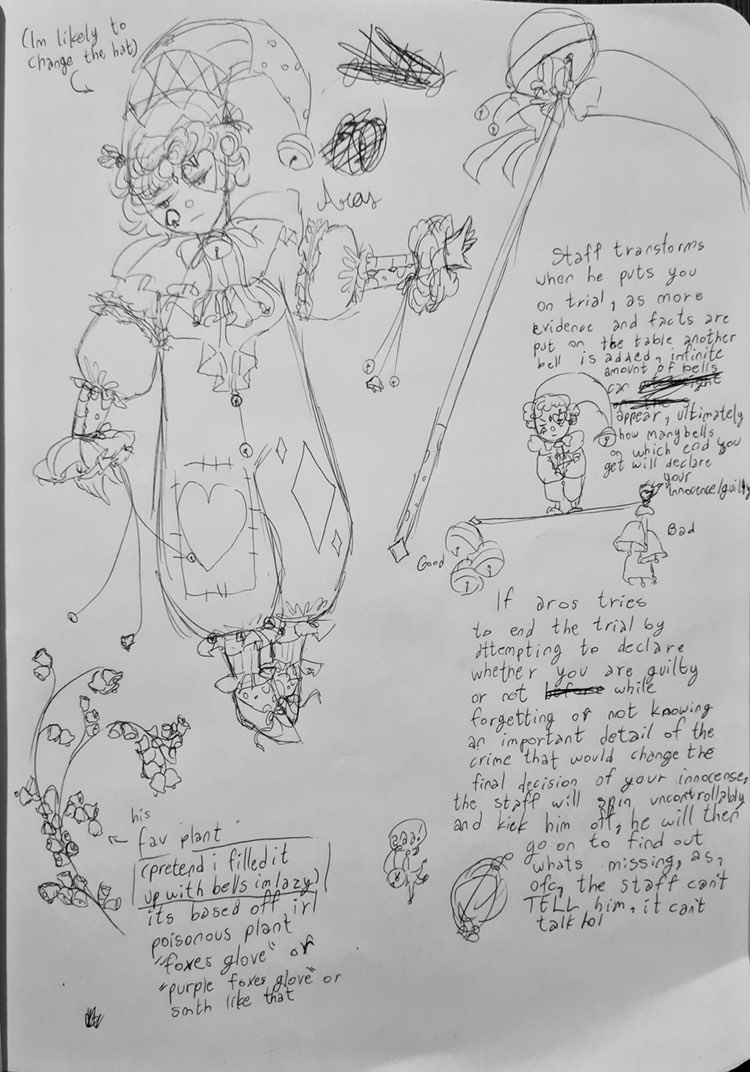 (Im likely to
change the hat)
Aros
Staff transforms
when he puts you
on trial, as more
evidence and facts are
put on the table another
bell is added, infinite
amount of bells
can
appear, ultimately
how many bells
on which end you
get will declare
your
innocence/guilty
Good
Bad
If aros tries
to end the trial by
attempting to declare
whether you are guilty
or not while
forgetting or not knowing
an important detail of the
crime that would change the
final decision of your innocense,
the staff will spin uncontrollably
and kick him off, he will then
go on to find out
whats missing, as,
ofc, the staff can't
TELL him, it can't
talk lol
his
fav plant
(pretend i filled it
up with bells im lazy)
its based off irl
poisonous plant
"foxes glove" or
"purple foxes glove" or
smth like that